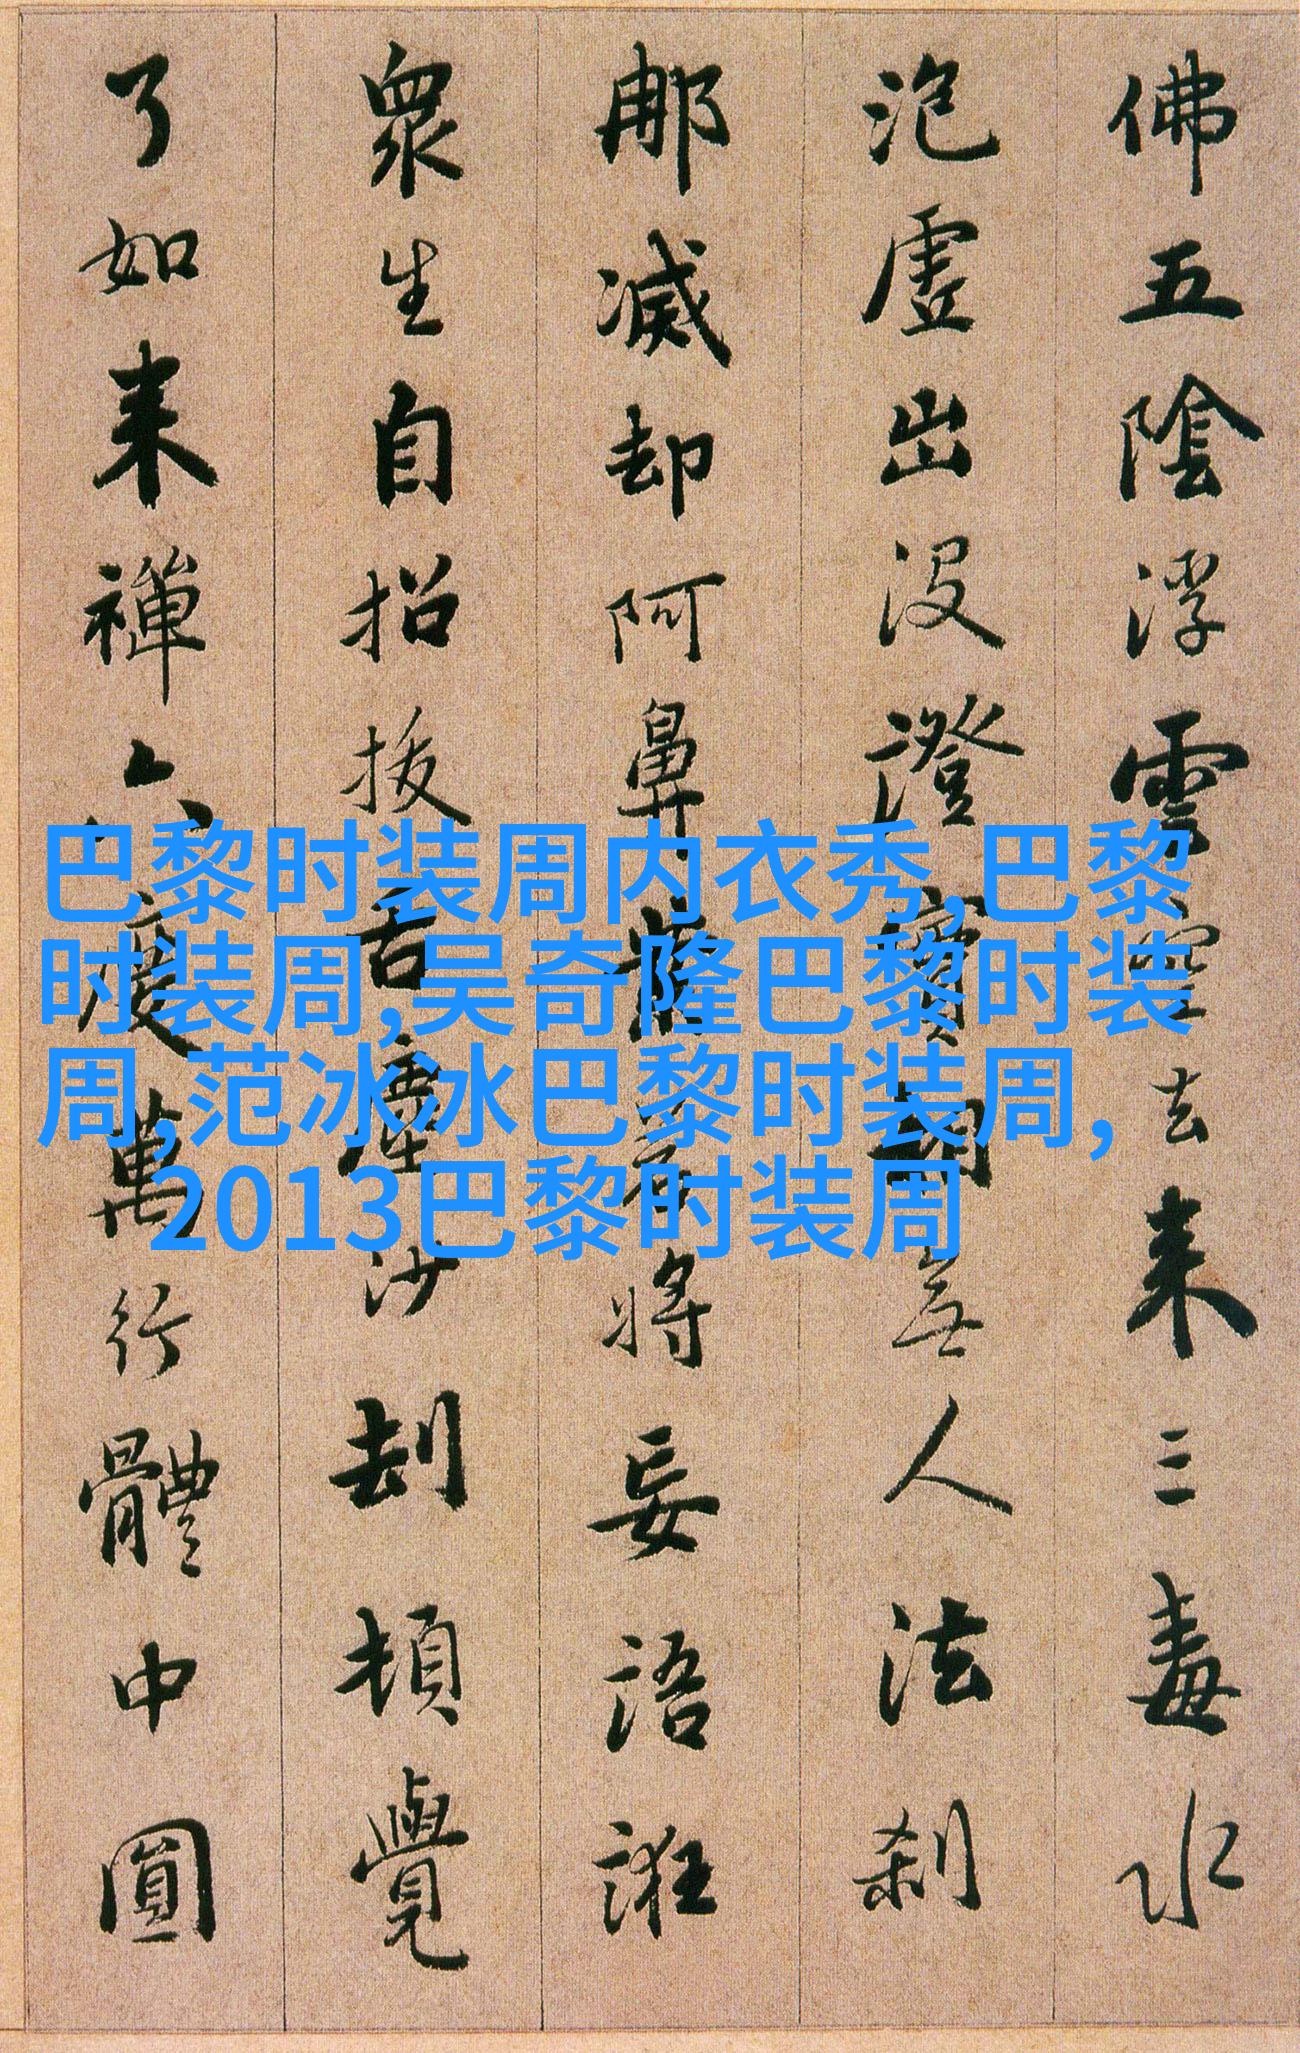 佛五陰浮雲空去来三毒水
泡虛出没證實相無人法刹
那滅却阿鼻業若將妄語誑
眾生自招拔舌塵沙劫頓覺
了如来禪六度萬行體中圓
巴黎时装周内衣秀,巴黎
时装周,吴奇隆巴黎时装
周,范冰冰巴黎时装周,
2013巴黎时装周